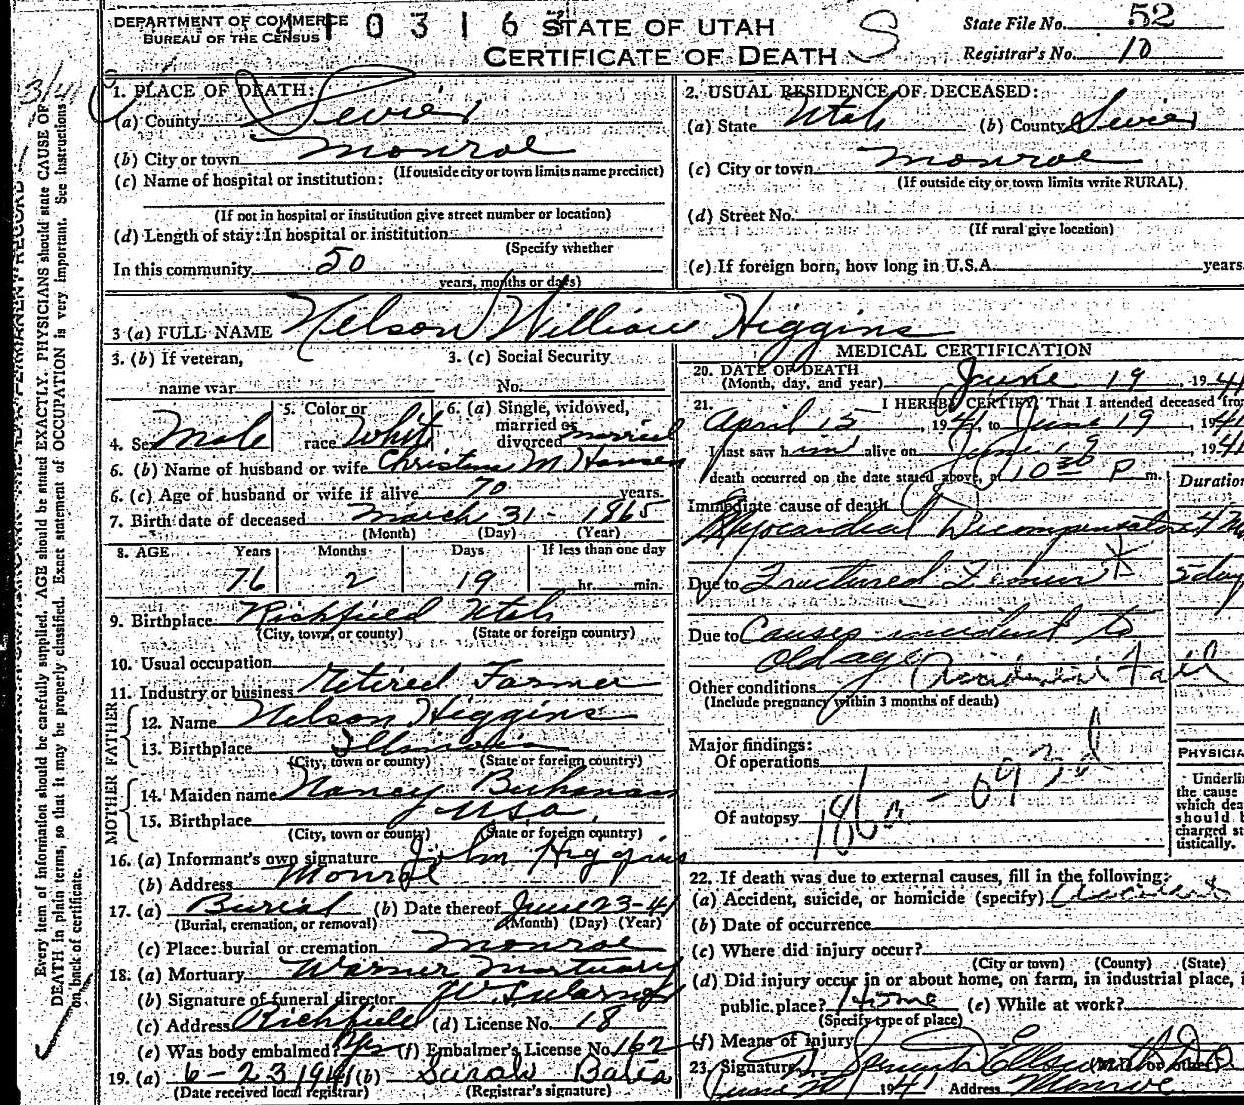 DEPARTMENT OF COMMERCE
BUREAU OF THE CENSUS
4 1 0 3 1 6
STATE OF UTAH
CERTIFICATE OF DEATH
S
State File No. 52
Registrar's No. 10
1. PLACE OF DEATH:
(a) County Sevier
(b) City or town Monroe
(If outside city or town limits name precinct)
(c) Name of hospital or institution:
(If not in hospital or institution give street number or location)
(d) Length of stay: In hospital or institution
(Specify whether
In this community 50
years, months or days)
2. USUAL RESIDENCE OF DECEASED:
(a) State Utah (b) County Sevier
(c) City or town Monroe
(If outside city or town limits write RURAL)
(d) Street No.
(If rural give location)
(e) If foreign born, how long in U.S.A. years.
3 (a) FULL NAME Nelson William Higgins
3. (b) If veteran,
name war
3. (c) Social Security
No.
4. Sex Male
5. Color or
race Whit
6. (a) Single, widowed,
married or
divorced married
6. (b) Name of husband or wife Christena M. Hansen
6. (c) Age of husband or wife if alive 70 years.
7. Birth date of deceased March 31 - 1865
(Month) (Day) (Year)
8. AGE Years Months Days If less than one day
76 2 19 hr. min.
9. Birthplace Richfield Utah
(City, town, or county) (State or foreign country)
10. Usual occupation
11. Industry or business Retired Farmer
FATHER
12. Name Nelson Higgins
13. Birthplace Illinois
(City, town or county) (State or foreign country)
MOTHER
14. Maiden name Nancy Buhanan
15. Birthplace USA
(City, town or county) (State or foreign country)
16. (a) Informant's own signature John Higgins
(b) Address Monroe
17. (a) Burial (b) Date thereof June 23-41
(Burial, cremation, or removal) (Month) (Day) (Year)
(c) Place: burial or cremation Monroe
18. (a) Mortuary Warner Mortuary
(b) Signature of funeral director
(c) Address Richfield (d) License No. 18
(e) Was body embalmed? Yes (f) Embalmer's License No. 162
19. (a) 6-23 1941 (b) Sarah Bates
(Date received local registrar) (Registrar's signature)
MEDICAL CERTIFICATION
20. DATE OF DEATH
(Month, day, and year) June 19, 1941
21. I HEREBY CERTIFY, That I attended deceased from
April 15, 1941, to June 19, 1941
I last saw him alive on June 19, 1941
death occurred on the date stated above, at 10 30 P m.
Duration
Immediate cause of death
Myocardial Decompensation 4
Due to Fractured Femur 5 day
Due to Causes incident to
old age
Accidental fall
Other conditions
(Include pregnancy within 3 months of death)
Major findings:
Of operations
Of autopsy
186
PHYSICIA
Underli
the cause
which dea
should b
charged st
tistically.
22. If death was due to external causes, fill in the following:
(a) Accident, suicide, or homicide (specify) Accident
(b) Date of occurrence
(c) Where did injury occur?
(City or town) (County) (State)
(d) Did injury occur in or about home, on farm, in industrial place, i
public place? Home (e) While at work?
(Specify type of place)
(f) Means of Injury
23. Signature
June 20 1941 Address Monroe
3/4
Every item of information should be carefully supplied. AGE should be stated EXACTLY. PHYSICIANS should state CAUSE OF
DEATH in plain terms, so that it may be properly classified. Exact statement of OCCUPATION is very important. See Instructions
on back of certificate.